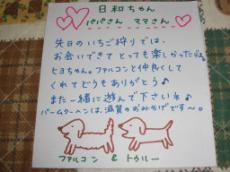 日和ちゃん
パパさん ママさん
先日のいちご狩りでは、
お会いできてとっても楽しかったね
ヒヨちゃん。ファルコンと仲良くして
くれてどうもありがとう♪
また一緒に遊んで下さいね♪
バームクーヘンは、滋賀のおみやげです〜。
ファルコン & トゥルー